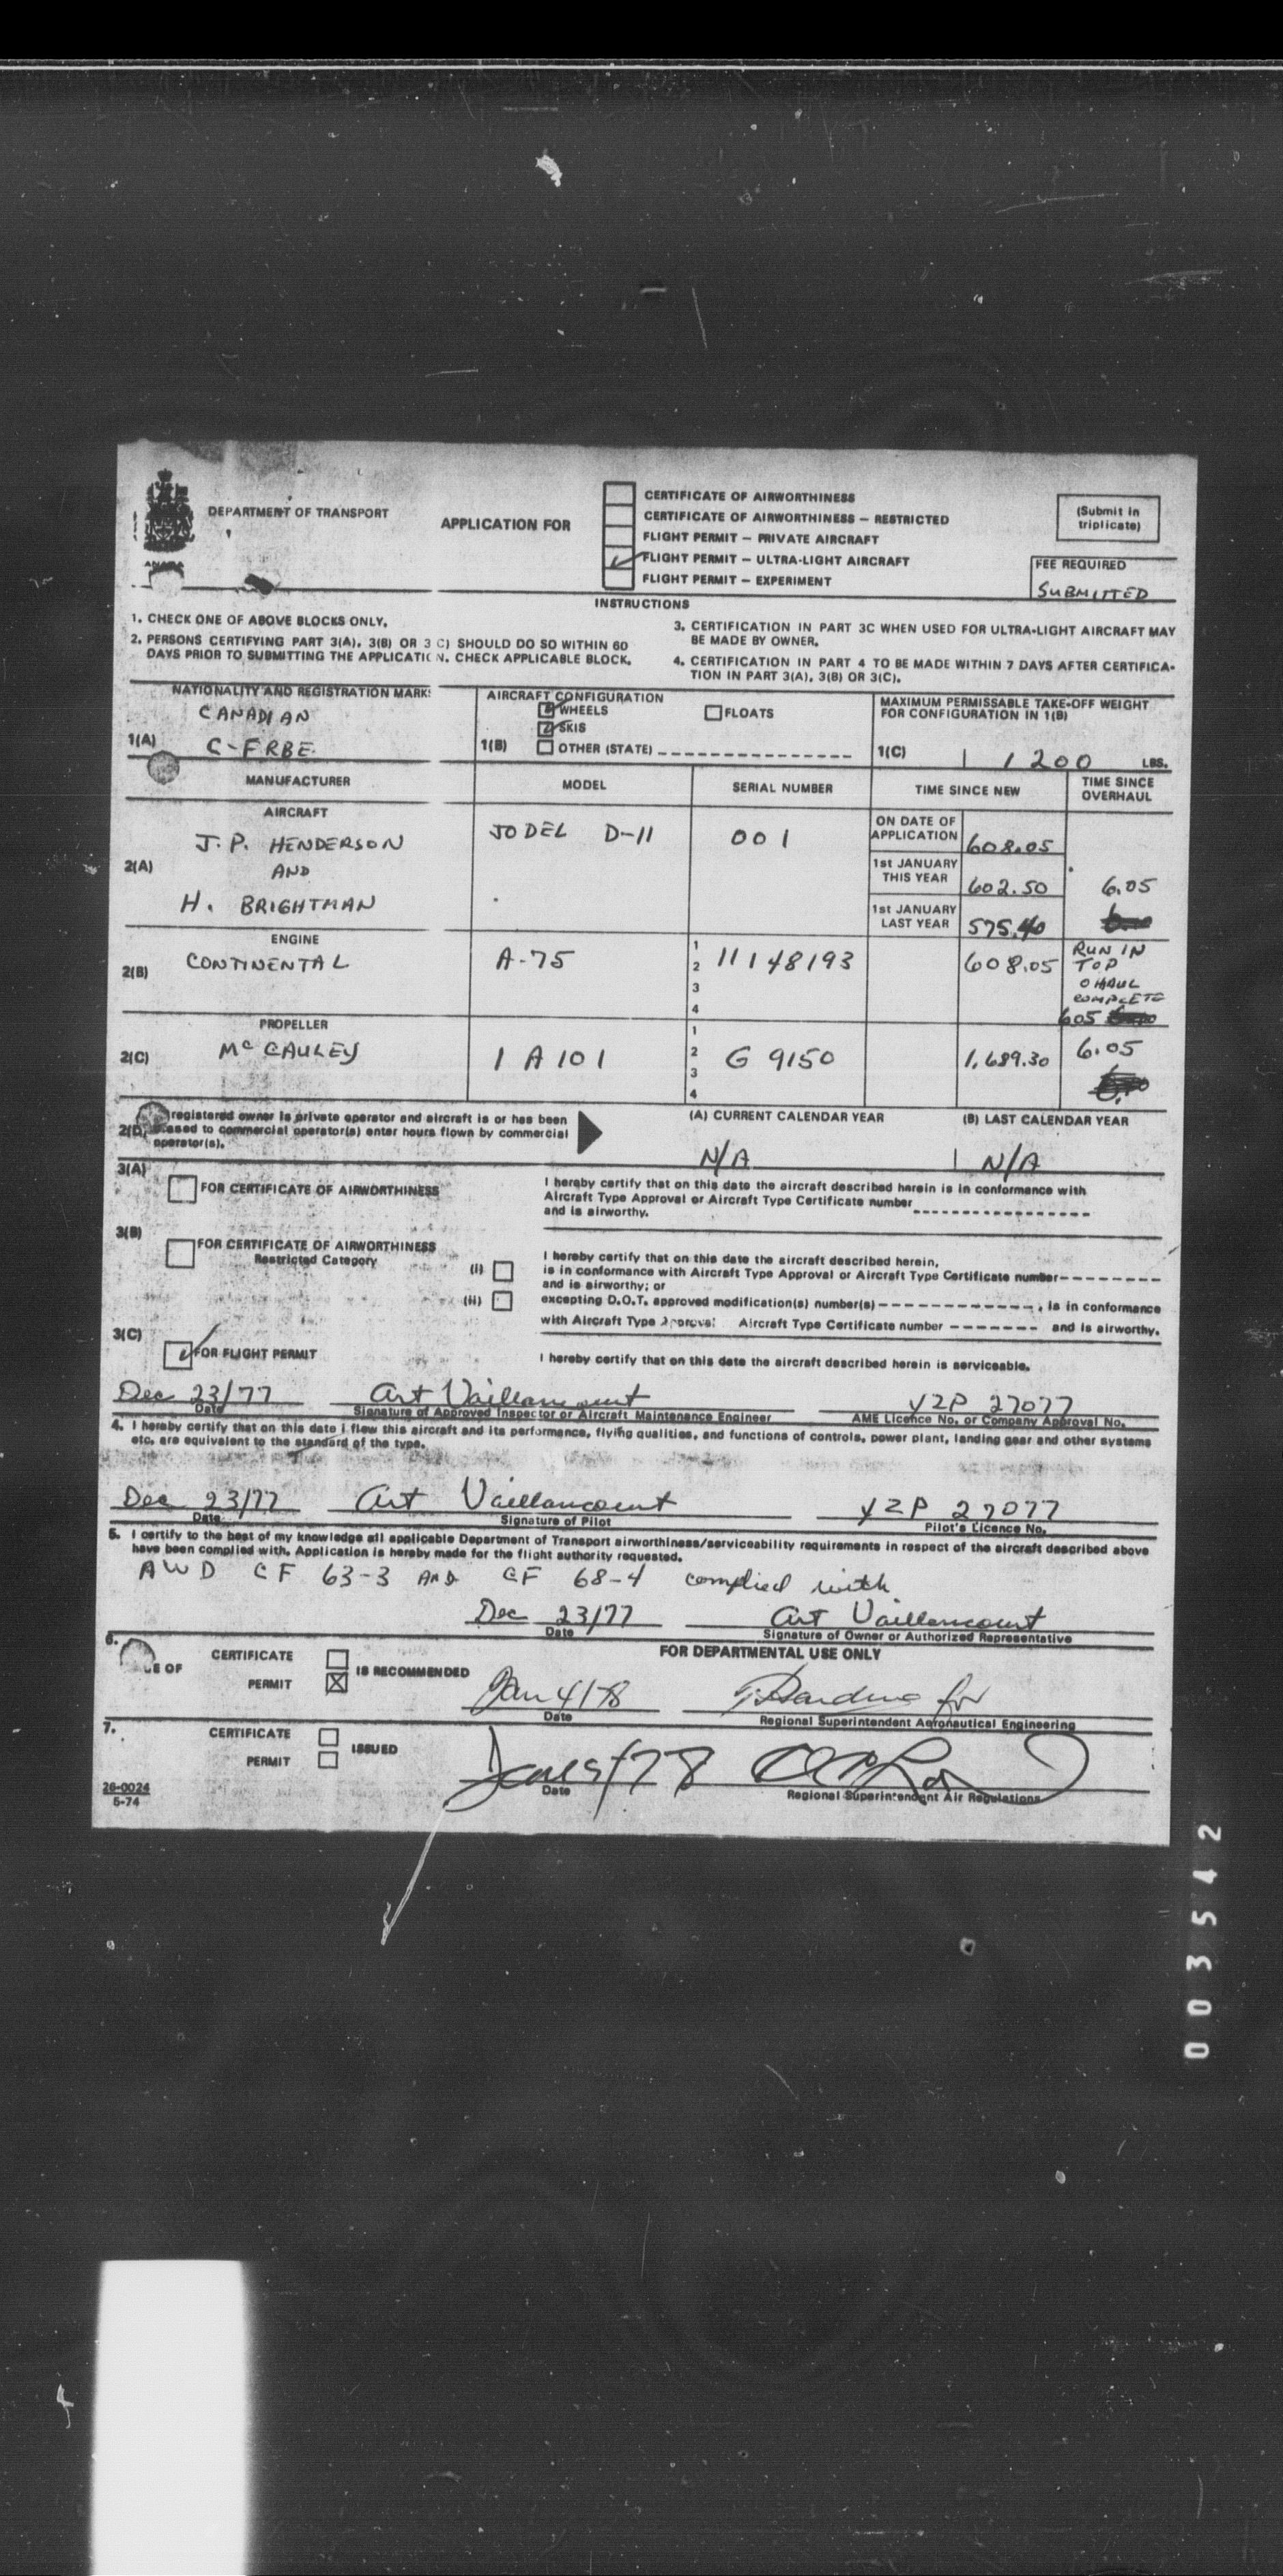 DEPARTMENT OF TRANSPORT
APPLICATION FOR
CERTIFICATE OF AIRWORTHINESS
CERTIFICATE OF AIRWORTHINESS — RESTRICTED
FLIGHT PERMIT — PRIVATE AIRCRAFT
FLIGHT PERMIT — ULTRA-LIGHT AIRCRAFT
FLIGHT PERMIT — EXPERIMENT
(Submit in
triplicate)
FEE REQUIRED
SUBMITTED
INSTRUCTIONS
1. CHECK ONE OF ABOVE BLOCKS ONLY.
2. PERSONS CERTIFYING PART 3(A), 3(B) OR 3 C) SHOULD DO SO WITHIN 60
DAYS PRIOR TO SUBMITTING THE APPLICATION. CHECK APPLICABLE BLOCK.
3. CERTIFICATION IN PART 3C WHEN USED FOR ULTRA-LIGHT AIRCRAFT MAY
BE MADE BY OWNER.
4. CERTIFICATION IN PART 4 TO BE MADE WITHIN 7 DAYS AFTER CERTIFICA-
TION IN PART 3(A), 3(B) OR 3(C).
NATIONALITY AND REGISTRATION MARKS
CANADIAN
1(A) C-FRBE
AIRCRAFT CONFIGURATION
WHEELS FLOATS
SKIS
1(B) OTHER (STATE)
MAXIMUM PERMISSABLE TAKE-OFF WEIGHT
FOR CONFIGURATION IN 1(B)
1(C) 1200 LBS.
MANUFACTURER MODEL SERIAL NUMBER TIME SINCE NEW TIME SINCE
OVERHAUL
AIRCRAFT
2(A) J.P. HENDERSON
AND
H. BRIGHTMAN
JODEL D-11 001
ON DATE OF
APPLICATION 608.05
1st JANUARY
THIS YEAR 602.50 6.05
1st JANUARY
LAST YEAR 575.40
ENGINE
2(B) CONTINENTAL A-75
1
2 11148193 608.05
3
4
RUN IN
TOP
OHAUL
COMPLETE
605
PROPELLER
2(C) McCAULEY 1A101
1
2 G 9150 1,689.30 6.05
3
4
2(D) registered owner is private operator and aircraft is or has been
leased to commercial operator(s) enter hours flown by commercial
operator(s).
(A) CURRENT CALENDAR YEAR (B) LAST CALENDAR YEAR
N/A N/A
3(A)
FOR CERTIFICATE OF AIRWORTHINESS
I hereby certify that on this date the aircraft described herein is in conformance with
Aircraft Type Approval or Aircraft Type Certificate number
and is airworthy.
3(B)
FOR CERTIFICATE OF AIRWORTHINESS
Restricted Category
I hereby certify that on this date the aircraft described herein,
(i) is in conformance with Aircraft Type Approval or Aircraft Type Certificate number
and is airworthy; or
(ii) excepting D.O.T. approved modification(s) number(s) , is in conformance
with Aircraft Type Approval Aircraft Type Certificate number and is airworthy.
3(C)
FOR FLIGHT PERMIT
I hereby certify that on this date the aircraft described herein is serviceable.
Dec 23/77 Art Vaillancourt YZP 27077
Date Signature of Approved Inspector or Aircraft Maintenance Engineer AME Licence No. or Company Approval No.
4. I hereby certify that on this date I flew this aircraft and its performance, flying qualities, and functions of controls, power plant, landing gear and other systems
etc. are equivalent to the standard of the type.
Dec 23/77 Art Vaillancourt YZP 27077
Date Signature of Pilot Pilot's Licence No.
5. I certify to the best of my knowledge all applicable Department of Transport airworthiness/serviceability requirements in respect of the aircraft described above
have been complied with. Application is hereby made for the flight authority requested.
AWD CF 63-3 AND CF 68-4 complied with
Dec 23/77 Art Vaillancourt
Date Signature of Owner or Authorized Representative
6. FOR DEPARTMENTAL USE ONLY
UE OF CERTIFICATE
PERMIT IS RECOMMENDED
Jan 4/78 for
Date Regional Superintendent Aeronautical Engineering
7. CERTIFICATE
PERMIT ISSUED
Date Regional Superintendent Air Regulations
26-0024
5-74
003542